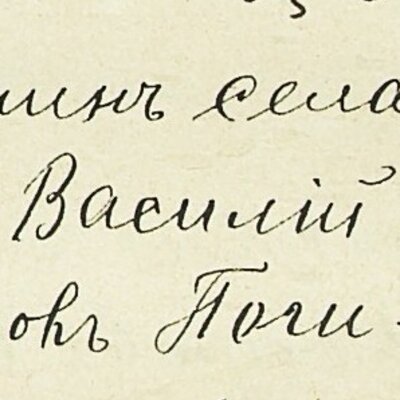 шинъ села
Василій
овъ Поги-